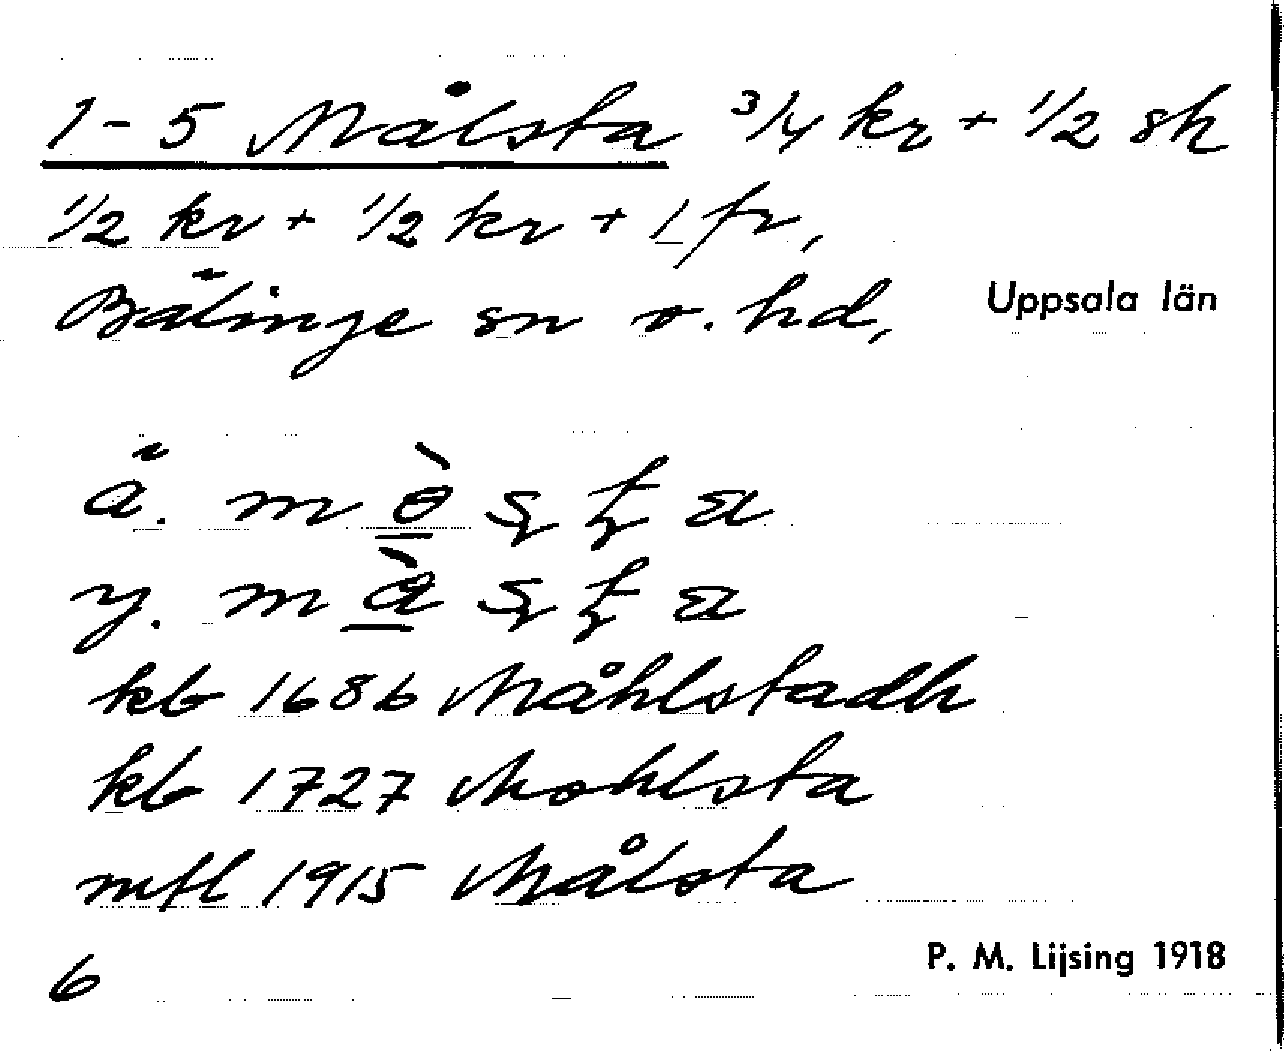 1-5 Målsta 3/4 kr + 1/2 sk
1/2 kr + 1/2 kr + 1 fr,
Bälinge sn o. hd,
Uppsala län
ä.
y.
kb 1686 Måhlstadh
kb 1727 Mohlsta
mfl 1915 Målsta
6
P. M. Lijsing 1918